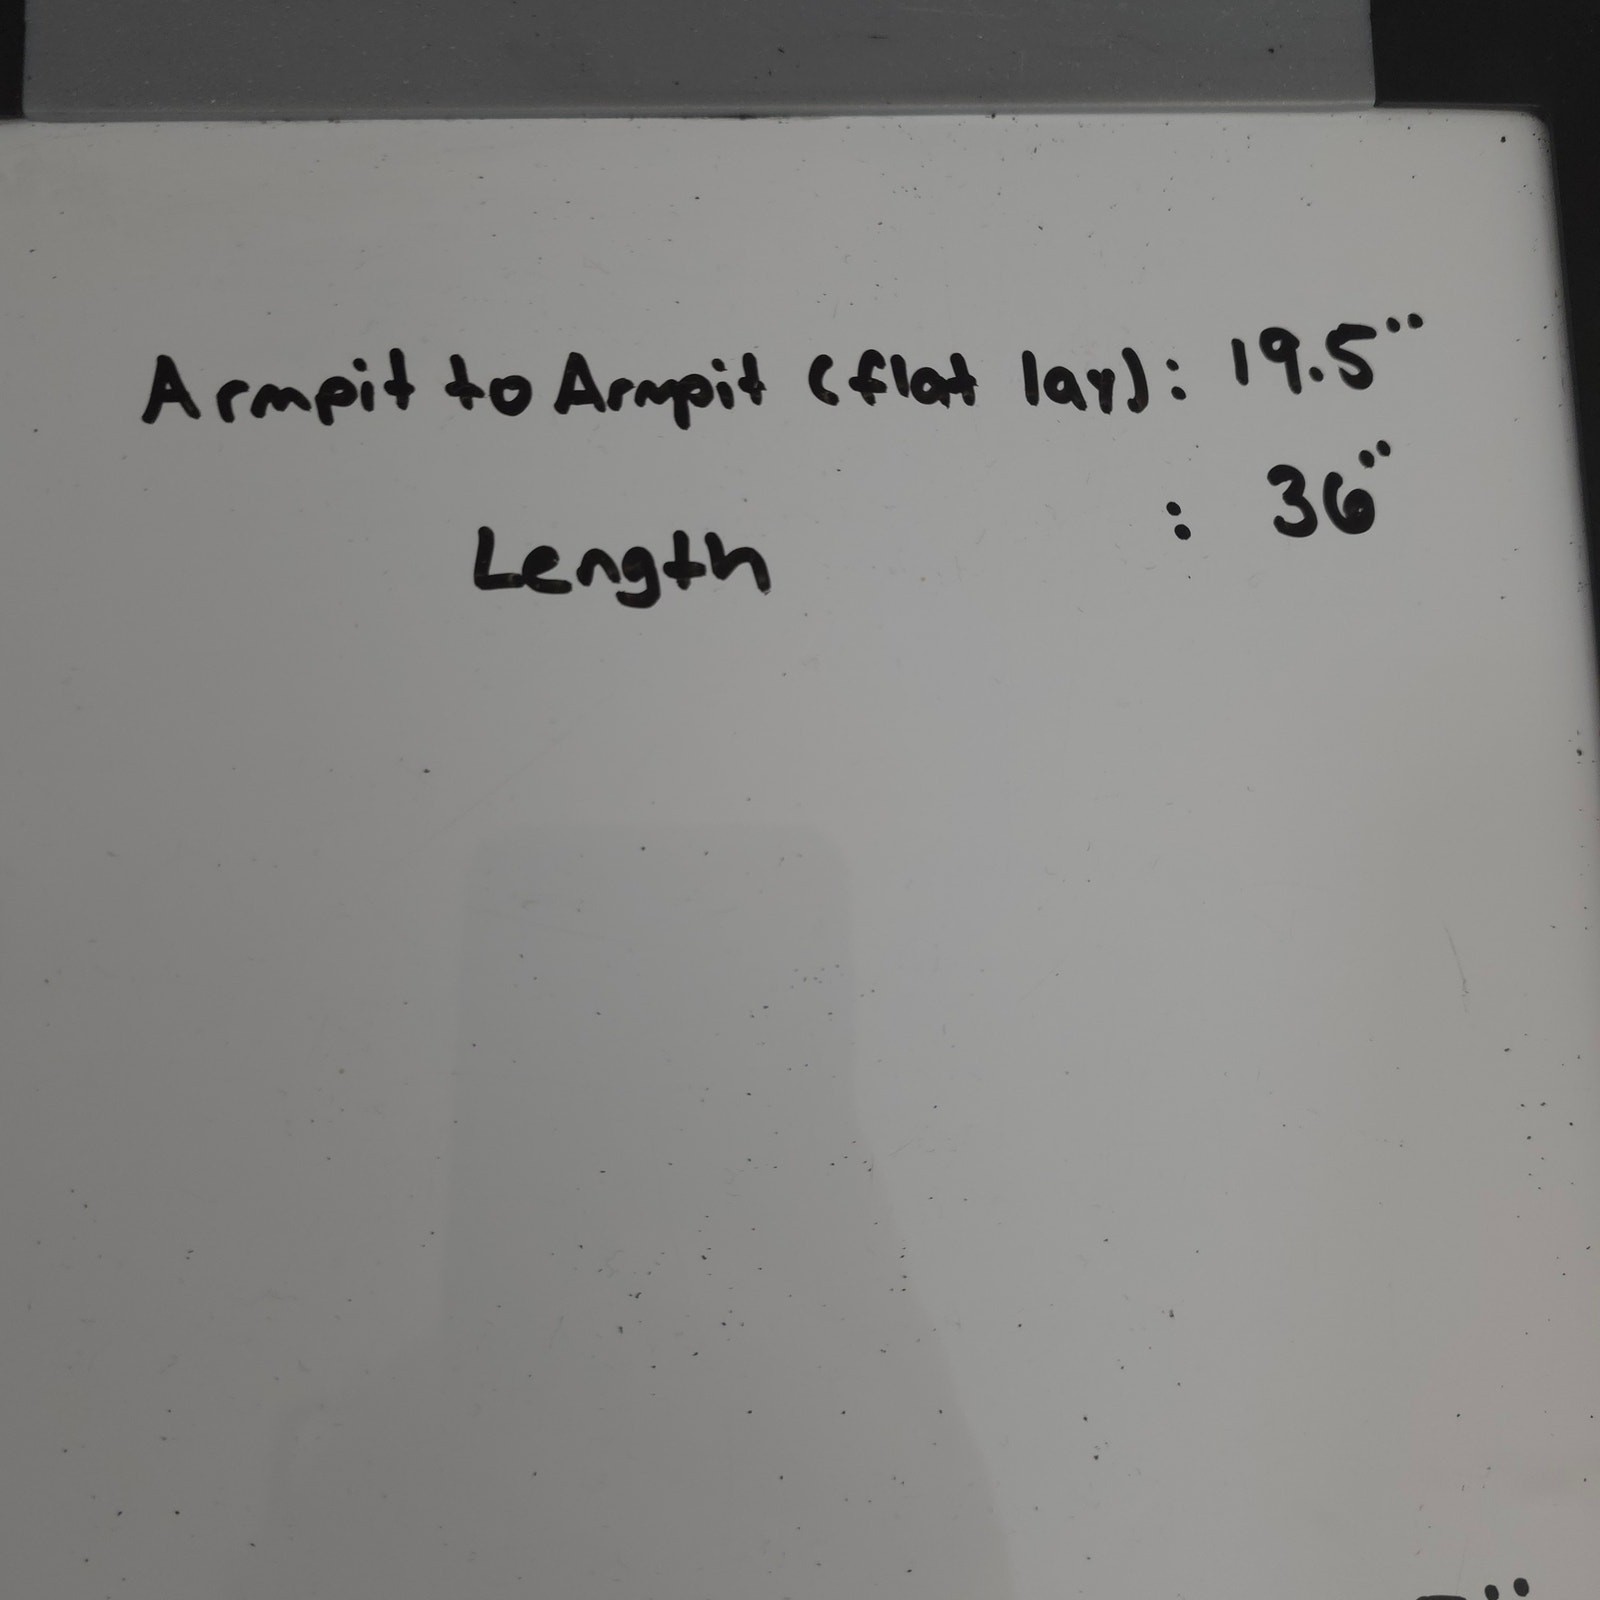 Armpit to Armpit (flat lay): 19.5"
Length : 36"